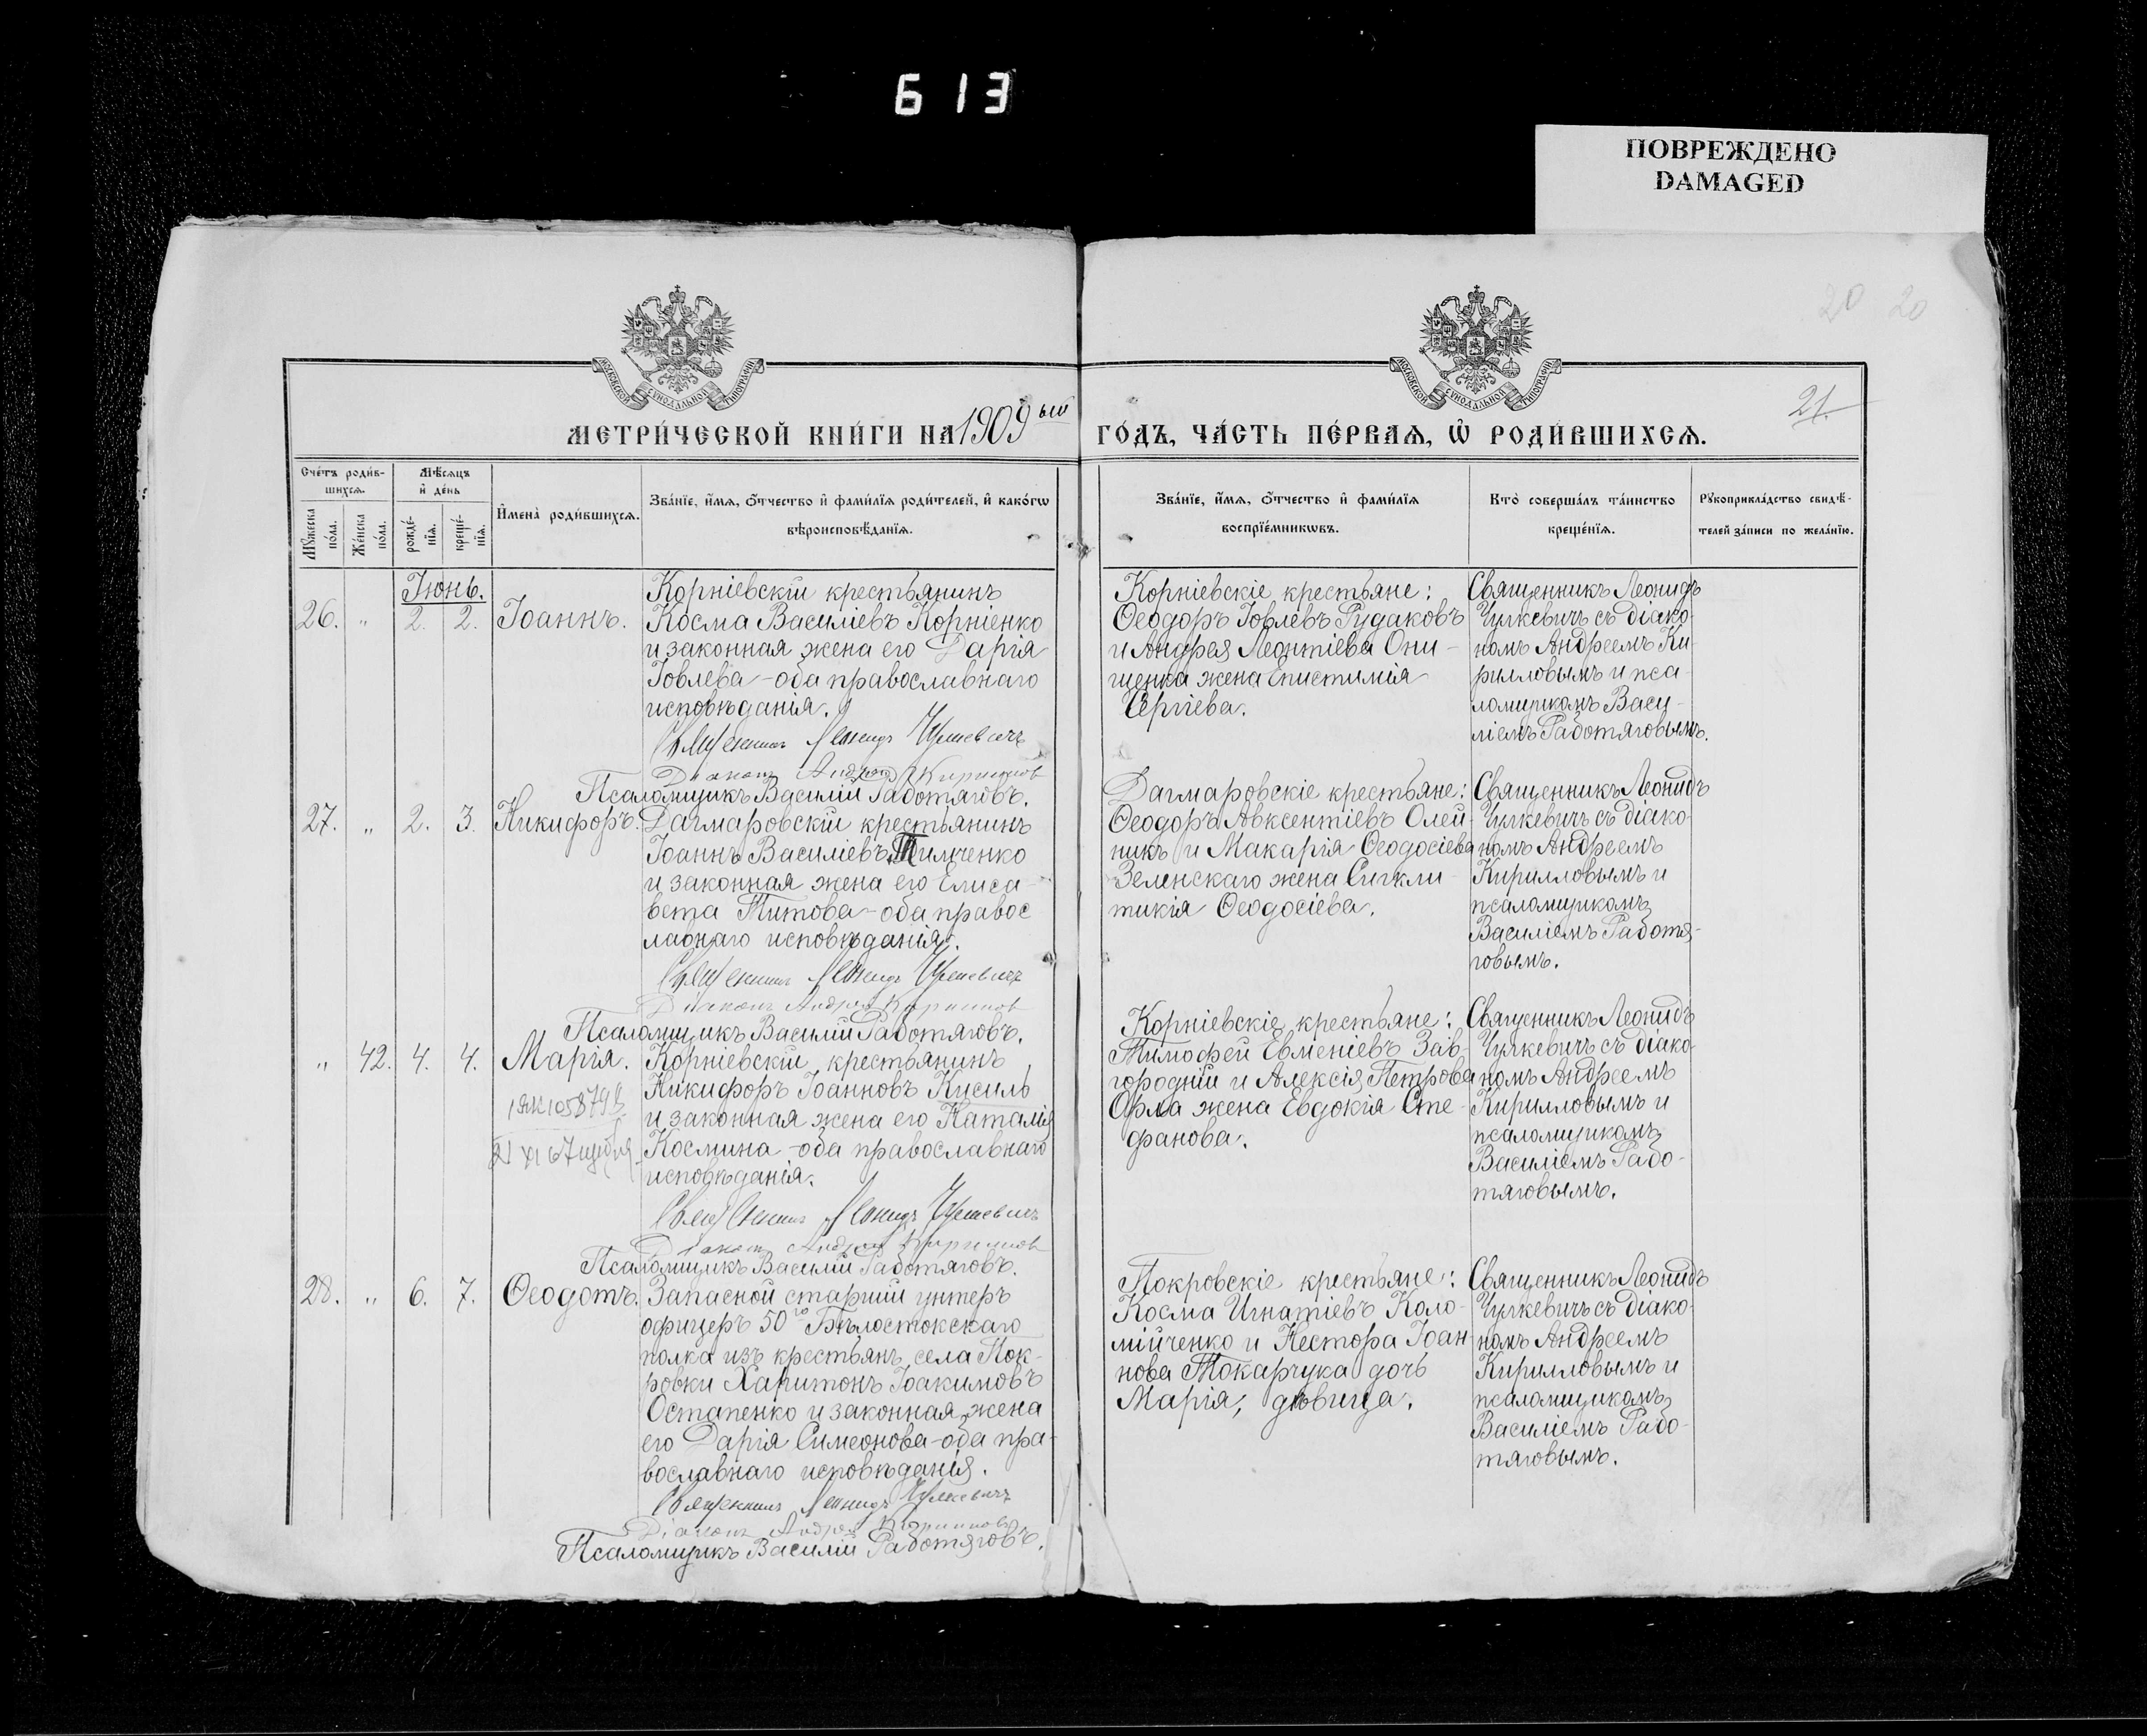 613
ПОВРЕЖДЕНО
DAMAGED
20 20
21.
МОСКОВСКОЙ СѴНОДАЛЬНОЙ ТИПОГРАФІИ
МОСКОВСКОЙ СѴНОДАЛЬНОЙ ТИПОГРАФІИ
МЕТРИ́ЧЕСКОЙ КНИ́ГИ НА 1909ый
ГО́ДЪ, ЧА́СТЬ ПЕ́РВАЯ, Ѽ РОДИ́ВШИХСЯ.
Сче́тъ роди́в-
шихся.
Мѣ́сяцъ
и҆ де́нь
Мꙋ́жеска
по́ла.
Же́нска
по́ла.
рожде́-
нїя.
креще́-
нїя.
И҆мена̀ роди́вшихся.
Зва́нїе, и҆́мя, ѻ҆́тчество и҆ фами́лїя роди́телей, и҆ како́гѡ
вѣроисповѣ́данїя.
Зва́нїе, и҆́мя, ѻ҆́тчество и҆ фами́лїя
воспрїе́мникѡвъ.
Кто̀ соверша́лъ та́инство
креще́нїя.
Рꙋкоприкла́дство свидѣ́-
телей за́писи по жела́нїю.
Іюнь.
26. " 2. 2. Іоаннъ.
Корніевскій крестьянинъ
Косма Василіевъ Корніенко
и законная жена его Дарія
Іовлева - оба православнаго
исповѣданія.
Священникъ Леонидъ Чулкевичъ
Діаконъ Андрей Кирилловъ
Псаломщикъ Василій Работяговъ.
Корніевскіе крестьяне:
Ѳеодоръ Іовлевъ Рудаковъ
и Андрея Леонтіева Они-
щенка жена Епистимія
Сергіева.
Священникъ Леонидъ
Чулкевичъ съ діако-
номъ Андреемъ Ки-
рилловымъ и пса-
ломщикомъ Васи-
ліемъ Работяговымъ.
27. " 2. 3. Никифоръ.
Дагмаровскій крестьянинъ
Іоаннъ Василіевъ Тимченко
и законная жена его Елиса-
вета Титова - оба правос
лавнаго исповѣданія.
Священникъ Леонидъ Чулкевичъ
Діаконъ Андрей Кирилловъ
Псаломщикъ Василій Работяговъ.
Дагмаровскіе крестьяне:
Ѳеодоръ Авксентіевъ Олей-
никъ и Макарія Ѳеодосіева
Зеленскаго жена Сигкли-
тикія Ѳеодосіева.
Священникъ Леонидъ
Чулкевичъ съ діако-
номъ Андреемъ
Кирилловымъ и
псаломщикомъ
Василіемъ Работя-
говымъ.
" 42. 4. 4. Марія.
Корніевскій крестьянинъ
Никифоръ Іоанновъ Кисиль
и законная жена его Наталія
Космина - оба православнаго
исповѣданія.
Священникъ Леонидъ Чулкевичъ
Діаконъ Андрей Кирилловъ
Псаломщикъ Василій Работяговъ.
Корніевскіе крестьяне:
Тимофей Евменіевъ Зав-
городній и Алексія Петрова
Орла жена Евдокія Сте-
фанова.
Священникъ Леонидъ
Чулкевичъ съ діако-
номъ Андреемъ
Кирилловымъ и
псаломщикомъ
Василіемъ Рабо-
тяговымъ.
28. " 6. 7. Ѳеодотъ.
Запасной старшій унтеръ
офицеръ 50го Бѣлостокскаго
полка изъ крестьянъ села Пок-
ровки Харитонъ Іоакимовъ
Остапенко и законная жена
его Дарія Симеонова - оба пра-
вославнаго исповѣданія.
Священникъ Леонидъ Чулкевичъ
Діаконъ Андрей Кирилловъ
Псаломщикъ Василій Работяговъ.
Покровскіе крестьяне:
Косма Игнатіевъ Коло-
мійченко и Нестора Іоан-
нова Токарчука дочь
Марія, дѣвица.
Священникъ Леонидъ
Чулкевичъ съ діако-
номъ Андреемъ
Кирилловымъ и
псаломщикомъ
Василіемъ Рабо-
тяговымъ.